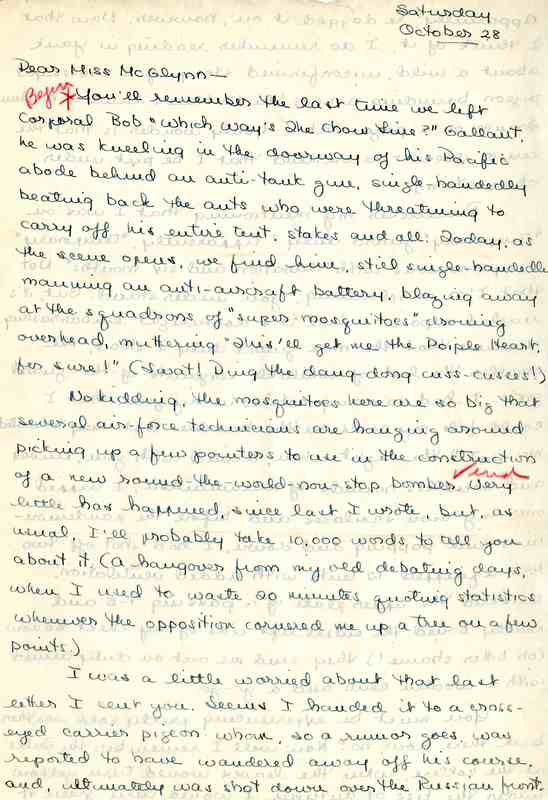 Saturday
October 28
Dear Miss McGlynn—
Begin You'll remember the last time we left
Corporal Bob "Which way's the chow line?" Gallant,
he was kneeling in the doorway of his Pacific
abode behind an anti-tank gun, single-handedly
beating back the ants who were threatening to
carry off his entire tent, stakes and all. Today, as
the scene opens, we find him, still single-handedly
manning an anti-aircraft battery, blazing away
at the squadrons of "super-mosquitoes" droning
overhead, muttering "This'll get me the Poiple Heart,
fer sure!" (Swat! Dung the dang-dong cuss-cusses!)
No kidding, the mosquitoes here are so big that
several air-force technicians are hanging around
picking up a few pointers to use in the construction
end
of a new round-the-world-non-stop bomber. Very
little has happened, since last I wrote, but, as
usual, I'll probably take 10,000 words to tell you
about it. (A hangover from my old debating days,
when I used to waste 20 minutes quoting statistics
whenever the opposition cornered me up a tree on a few
points.)
I was a little worried about that last
letter I sent you. Seems I handed it to a cross-
eyed carrier pigeon whom, so a rumor goes, was
reported to have wandered away off his course.
and, ultimately was shot down over the Russian front.